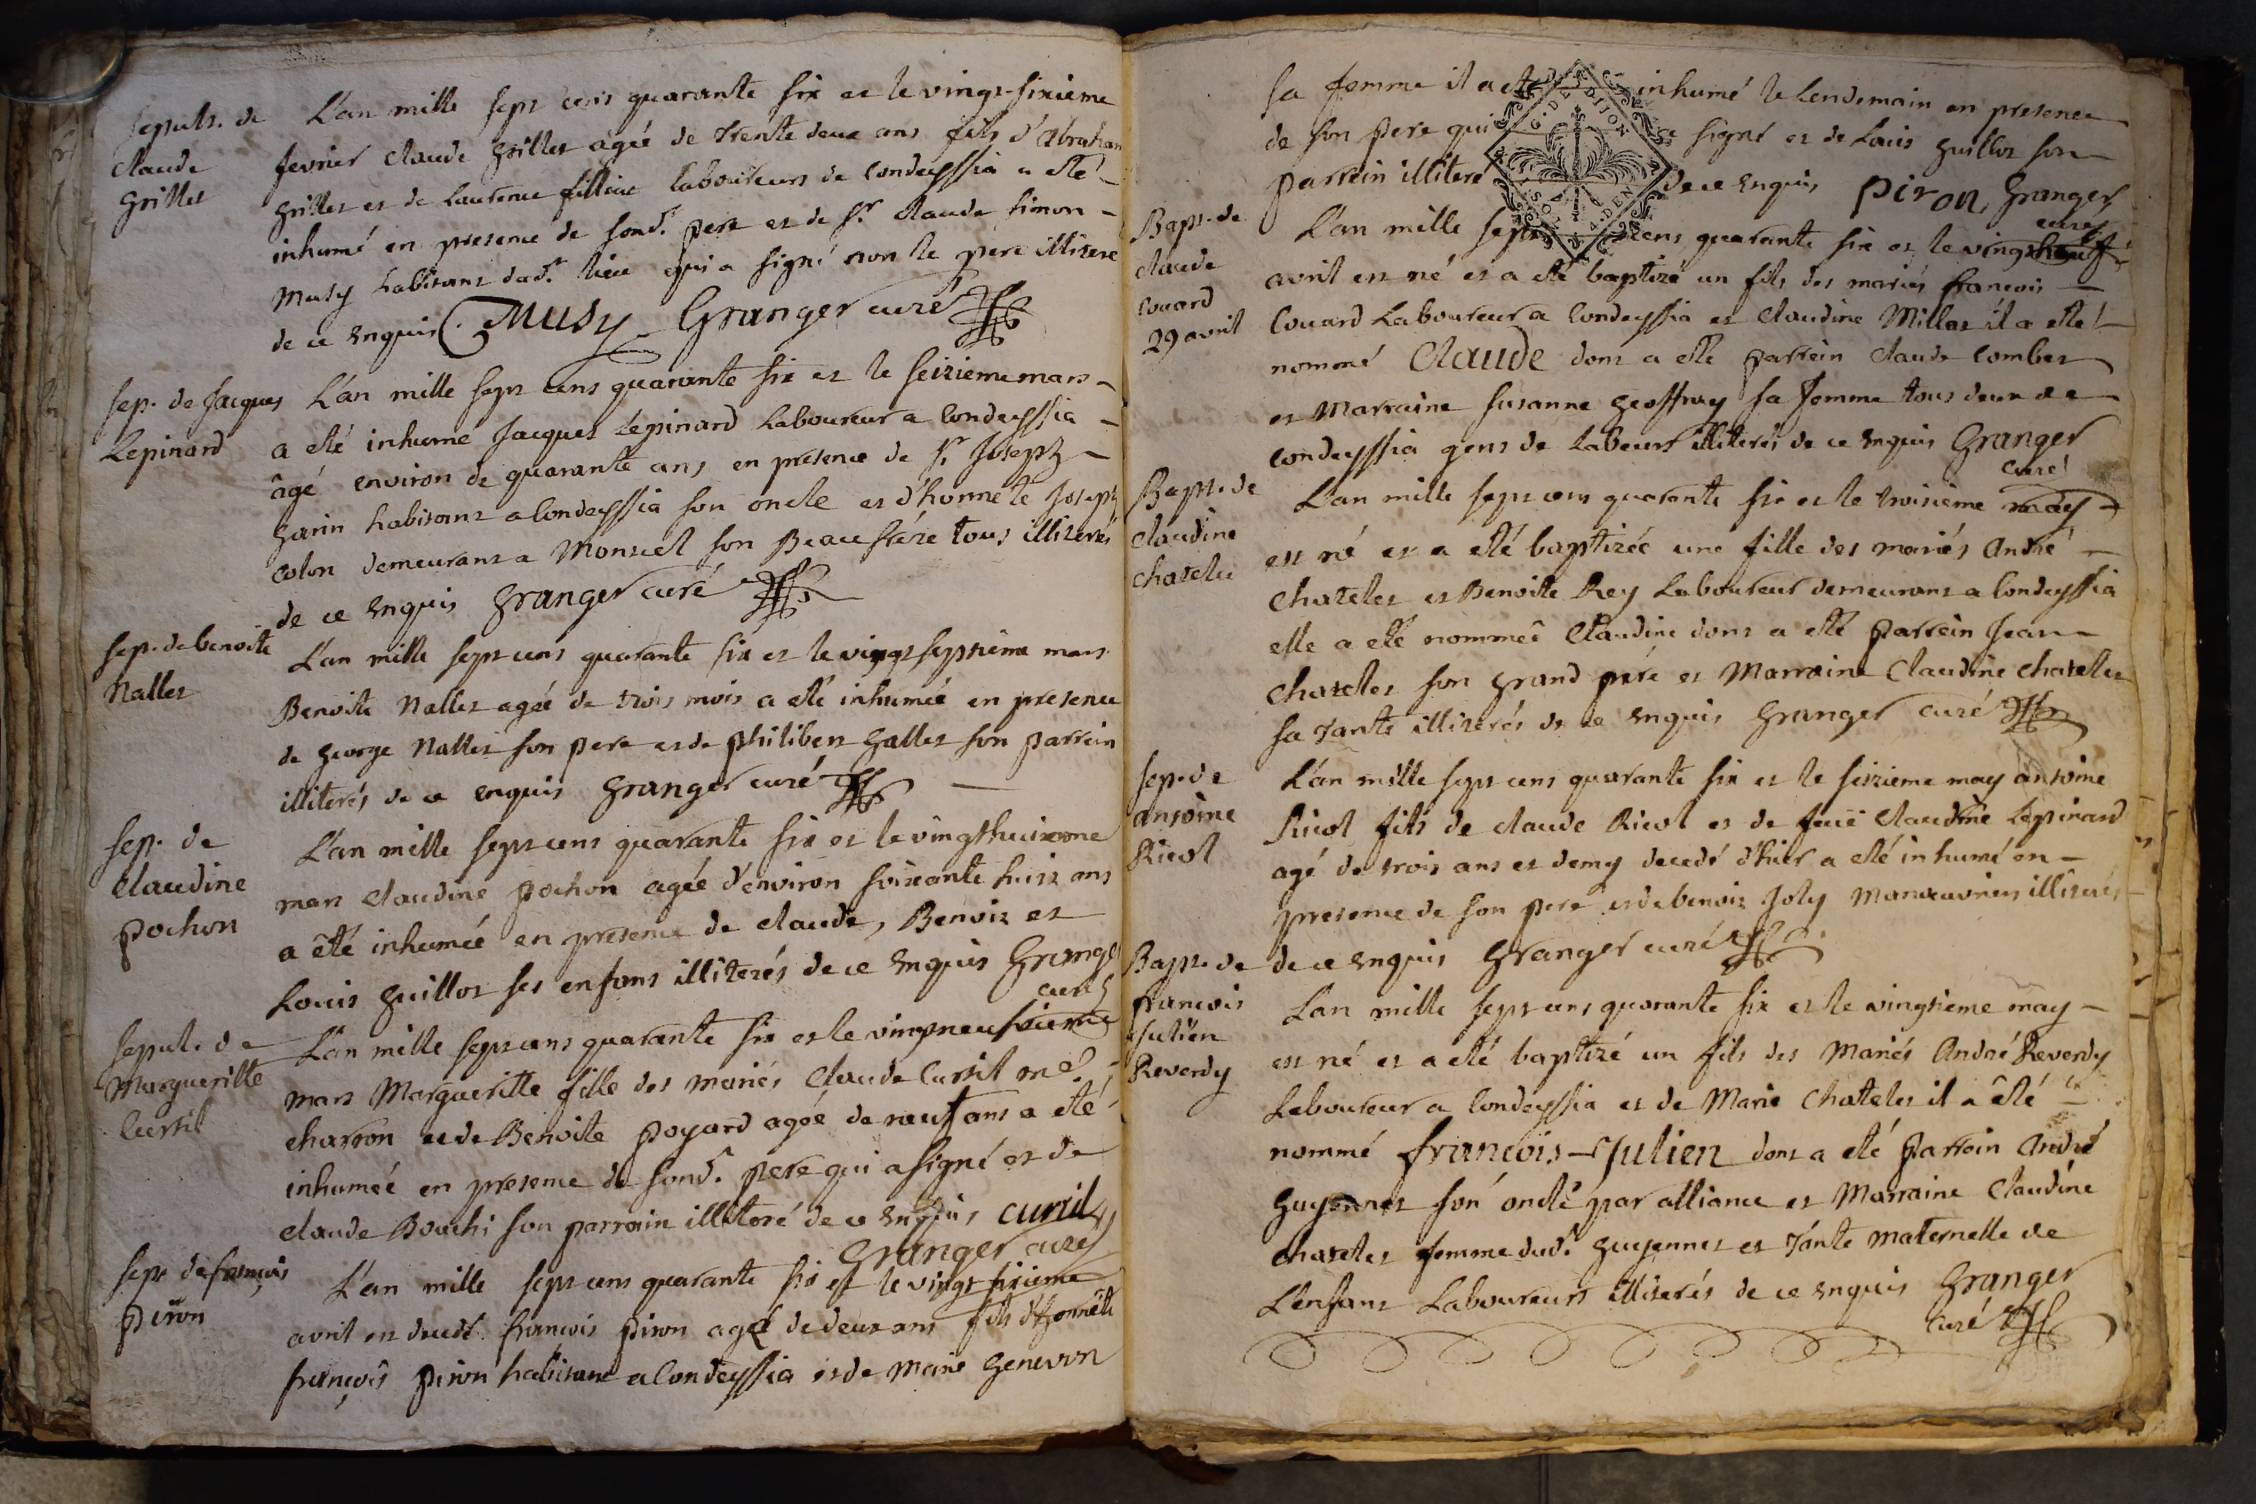 sepult. de
Claude
Grillet
L'an mille sept cens quarante six et le vingt-sixieme
fevrier Claude Grillet agée de trente deux ans fils d'Abraham
Grillet et de Laurence fillion laboureurs de Condeyssia a eté
inhumé en presence de sond.t pere et de s.r Claude Simon
Musy habitant dud.t lieu qui a signé non le pere illiteré
de ce enquis Musy Granger curé
sep. de Jacques
Lepinard
L'an mille sept cens quarante six et le seizieme mars
a eté inhumé Jacques Lépinard Laboureur a Condeyssia
âgé environ de quarante ans en presence de s.r Joseph
Garin habitant a Condeyssia son oncle et d'honnete Joseph
Colon demeurant a Montcel son Beaufrére tous illiterés
de ce enquis Granger curé
sep. de benoite
Nallet
L'an mille sept cens quarante six et le vingt septieme mars
Benoite Nallet agée de trois mois a eté inhumée en presence
de George Nallet son pere et de Philibert Gallet son parrein
illiterés de ce enquis Granger curé
sep. de
Claudine
pochon
L'an mille sept cens quarante six et le vingthuitieme
mars Claudine pochon agée d'environ soixante huit ans
a êté inhumée en presence de Claude, Benoit et
Louis Guillot ses enfans illiterés de ce enquis Granger
curé
sepult. de
Margueritte
Cursil
L'an mille sept cens quarante six et le vingtneufvieme
mars Margueritte fille des mariés Claude Cursil me
charron et de Benoite poyard agée de neuf ans a eté
inhumée en presence de sond.t pere qui a signé et de
Claude Bouchi son parrain illiteré de ce enquis Cursil
Granger curé
sep. de françois
piron
L'an mille sept cens quarante six et le vingt sixieme
avril est decedé francois piron agé de deux ans fils d'honnête
françois piron habitant a Condeyssia et de Marie Genevon
sa femme il a eté inhumé le lendemain en presence
de son pere qui a signé et de Louis Guillot son
parrein illiteré de ce enquis piron, Granger
curé
G. DE DIJON
SOL 4 DEN
Bapt. de
Claude
Couard
29 avril
L'an mille sept cens quarante six et le vingt neuf
avril est né et a eté baptizé un fils des mariés francois
Couard Laboureur a Condeyssia et Claudine Millat il a eté
nommé Claude dont a eté parrein Claude Combet
et Marraine Susanne Geoffray sa femme tous deux de
Condeyssia gens de Labeurs illiterés de ce enquis Granger
curé
Bapt. de
Claudine
Chatelet
L'an mille sept cens quarante six et le troisieme may
est né et a eté baptizée une fille des mariés André
Chatelet et Benoite Rey Laboureur demeurant a Condeyssia
elle a eté nommée Claudine dont a eté parrein Jean
Chatelet son grand pére et Marraine Claudine Chatelet
sa tante illiterés de ce enquis Granger curé
sep. de
antoine
Ricol
L'an mille sept cens quarante six et le seizieme may antoine
Ricol fils de Claude Ricol et de feüe Claudine Lépinard
agé de trois ans et demy decedé d'hier a eté inhumé en
presence de son pere et de benoit Joly Manoeuvriers illiterés
de ce enquis Granger curé
Bapt. de
francois
Julien
Reverdy
L'an mille sept cens quarante six et le vingtieme may
est né et a eté baptizé un fils des Mariés André Reverdy
Laboureur a Condeyssia et de Marie Chatelet il a êté
nommé francois-Julien dont a eté parrein André
Guyennet son oncle par alliance et Marraine Claudine
Chatelet femme dud.t Guyennet et tante maternelle de
L'enfant Laboureurs illiterés de ce enquis Granger
Curé